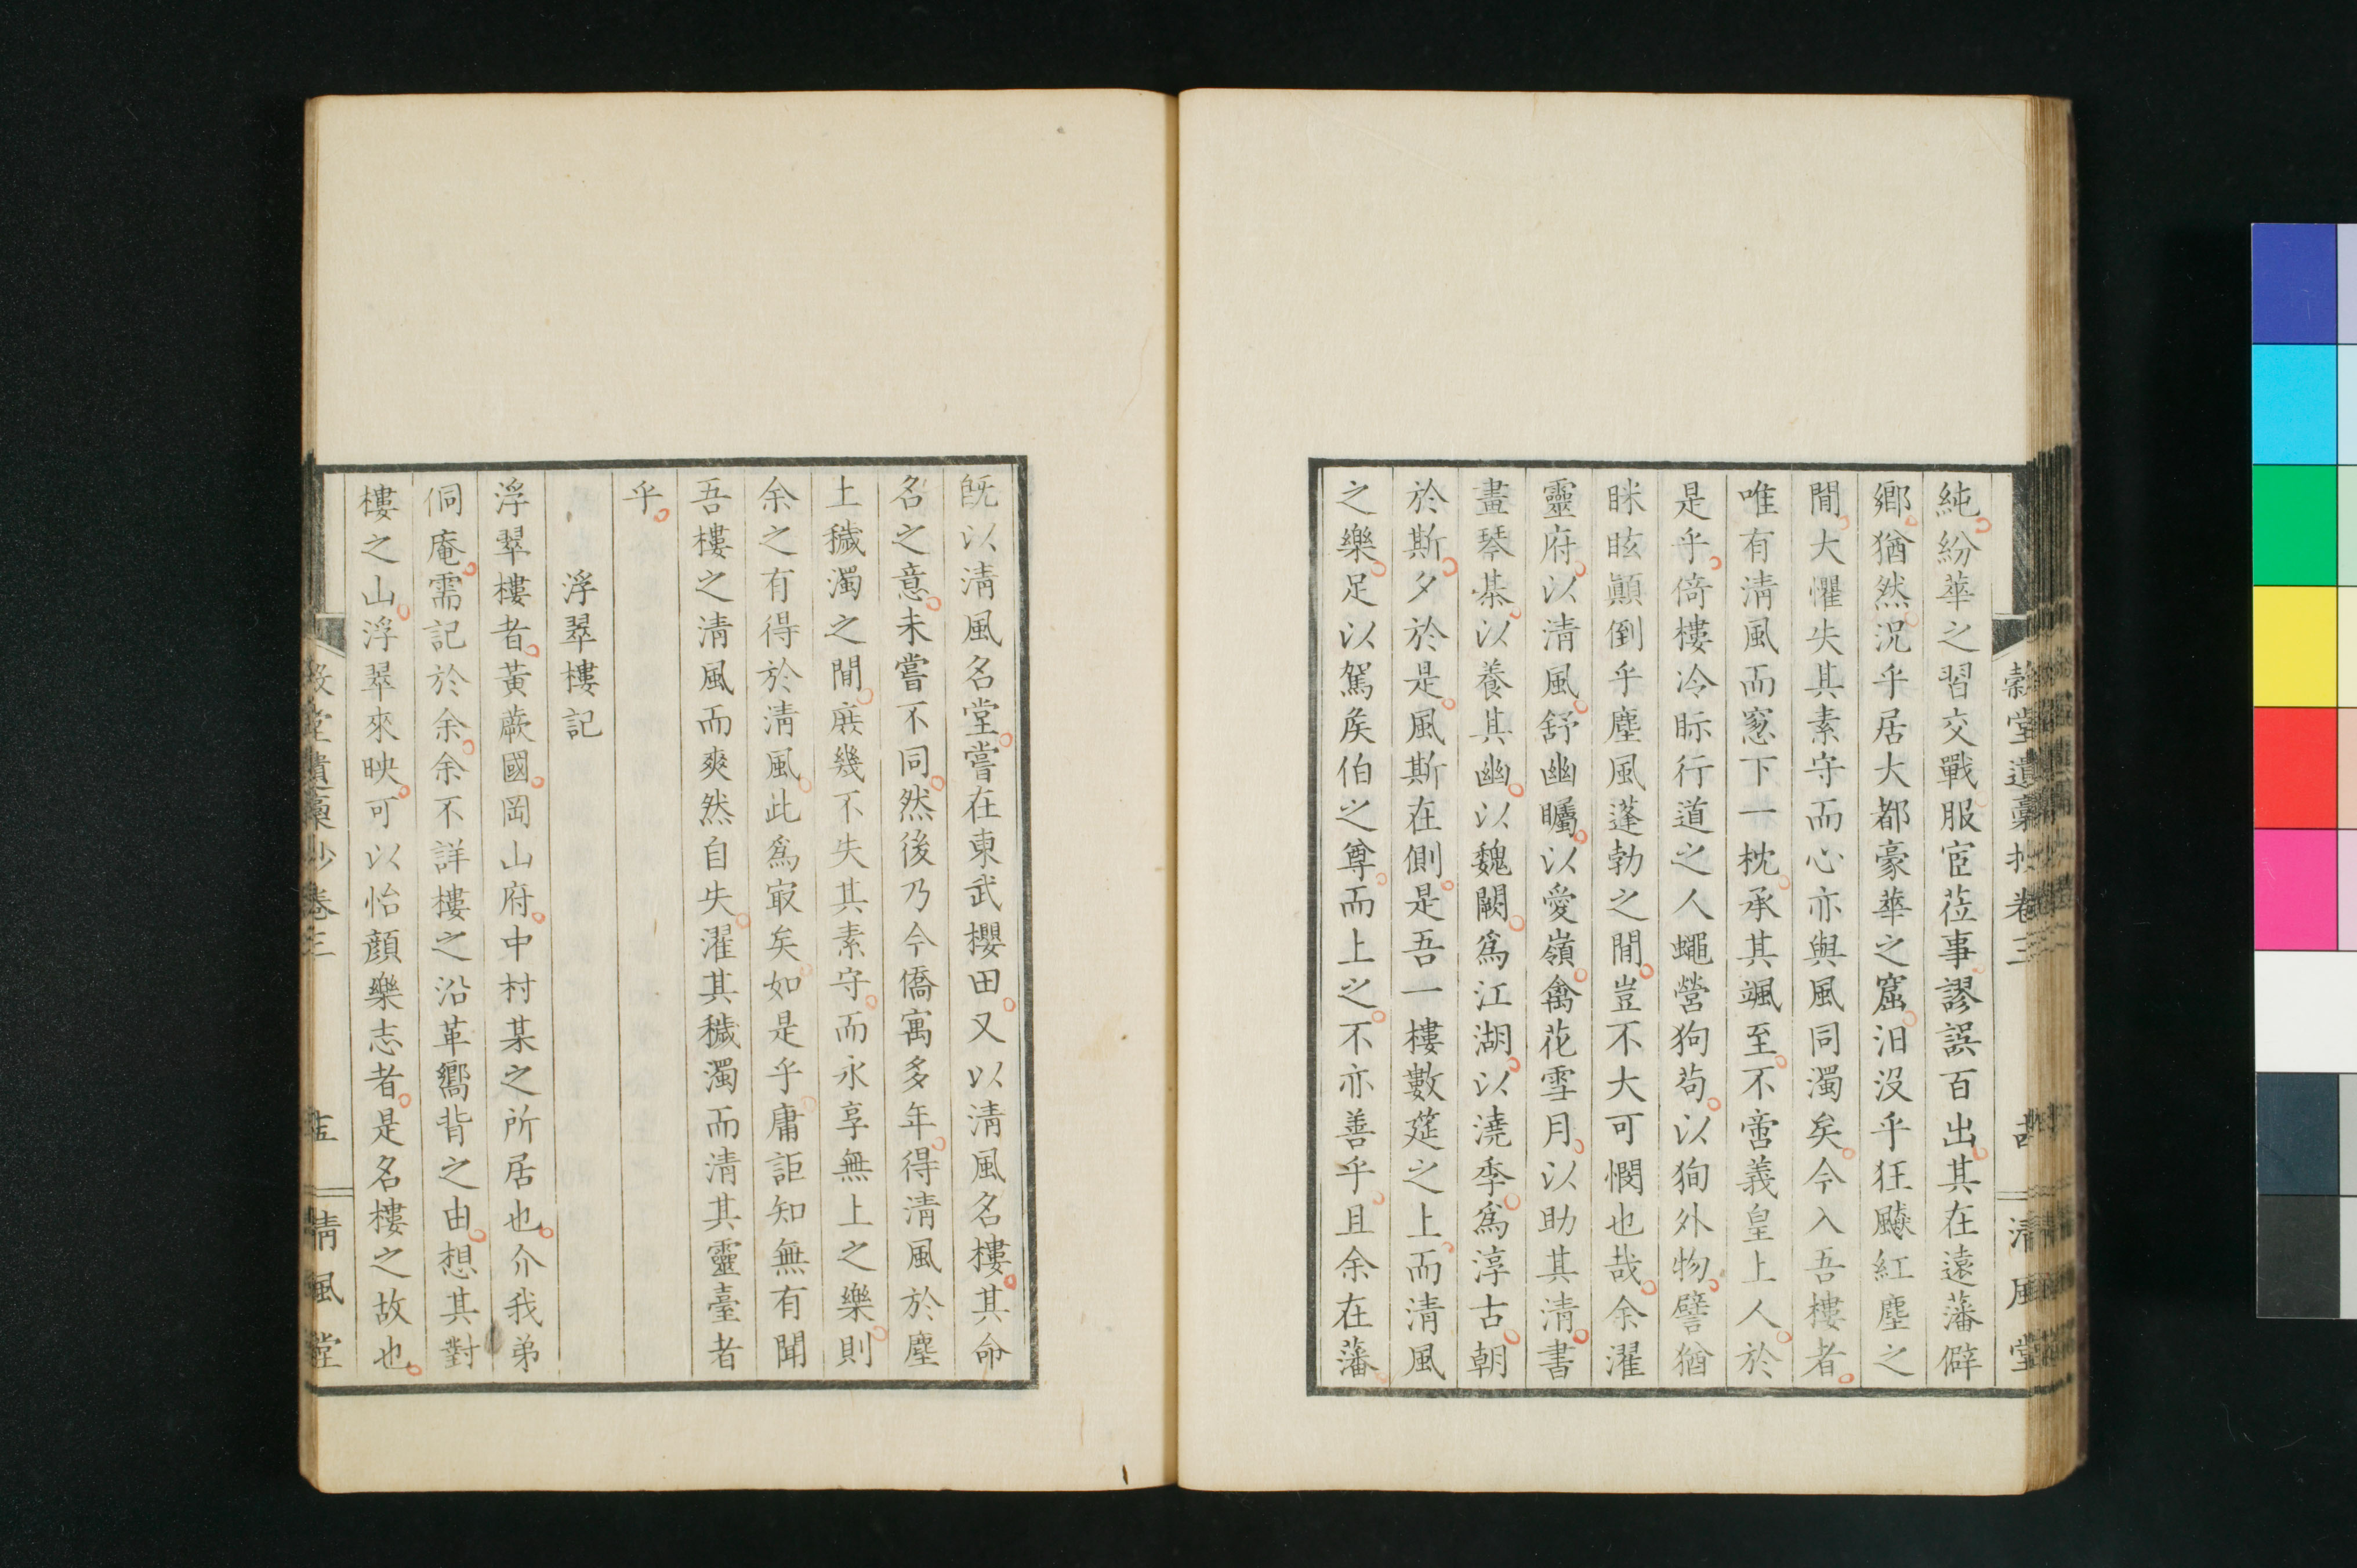 純紛華之習交戰服宦莅事謬誤百出其在遠藩僻
鄉猶然況乎居大都豪華之窟汨沒乎狂飈紅塵之
間大懼失其素守而心亦與風同濁矣今入吾樓者
唯有清風而窓下一枕承其颯至不啻義皇上人於
是乎倚樓冷眎行道之人蠅營狗苟以狥外物譬猶
眯眩顚倒乎塵風蓬勃之間豈不大可憫也哉余濯
靈府以清風舒幽矚以愛嶺禽花雪月以助其清書
畫琴棊以養其幽以魏闕爲江湖以澆季爲淳古朝
於斯夕於是風斯在側是吾一樓數筵之上而清風
之樂足以駕矦伯之尊而上之不亦善乎且余在藩
穀堂遺稾抄卷三
清風堂
旣以清風名堂嘗在東武櫻田又以清風名樓其命
名之意未嘗不同然後乃今僑寓多年得清風於塵
土穢濁之間庶幾不失其素守而永享無上之樂則
余之有得於清風此爲冣矣如是乎庸詎知無有聞
吾樓之清風而爽然自失濯其穢濁而清其靈臺者
乎
浮翠樓記
浮翠樓者黃蕨國岡山府中村某之所居也介我弟
侗庵需記於余余不詳樓之沿革嚮背之由想其對
樓之山浮翠來映可以怡顏樂志者是名樓之故也
穀堂遺稾抄卷三
十五
清風堂